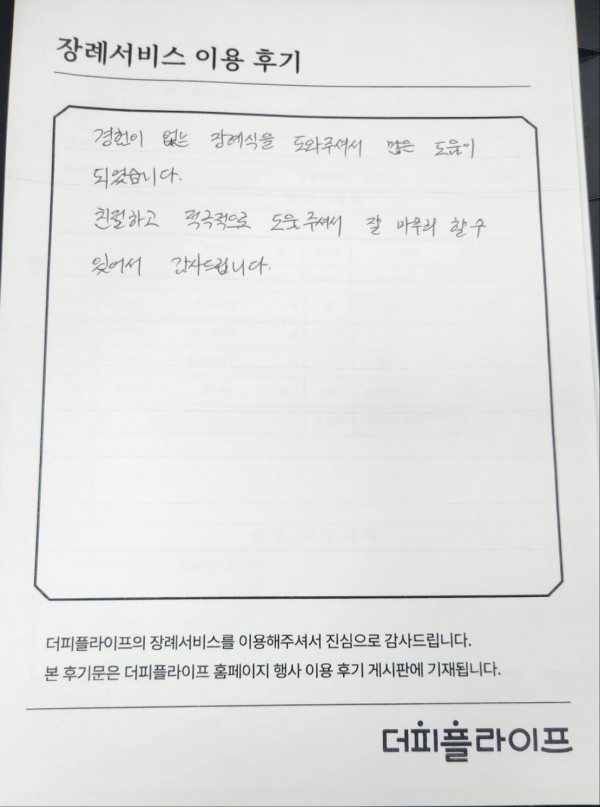 장례서비스 이용 후기
경험이 없는 장례식을 도와주셔서 많은 도움이
되었습니다.
친절하고 적극적으로 도움주셔서 잘 마무리 할 수
있어서 감사드립니다.
더피플라이프의 장례서비스를 이용해주셔서 진심으로 감사드립니다.
본 후기문은 더피플라이프 홈페이지 행사 이용 후기 게시판에 기재됩니다.
더피플라이프